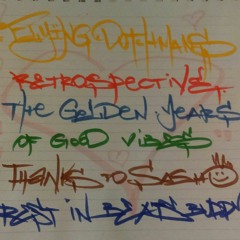 FLYING DUTCHMANS
RETROSPECTIVE
THE GOLDEN YEARS
OF GOOD VIBES
THANKS TO SASH
BEST IN BEATS BUDDY